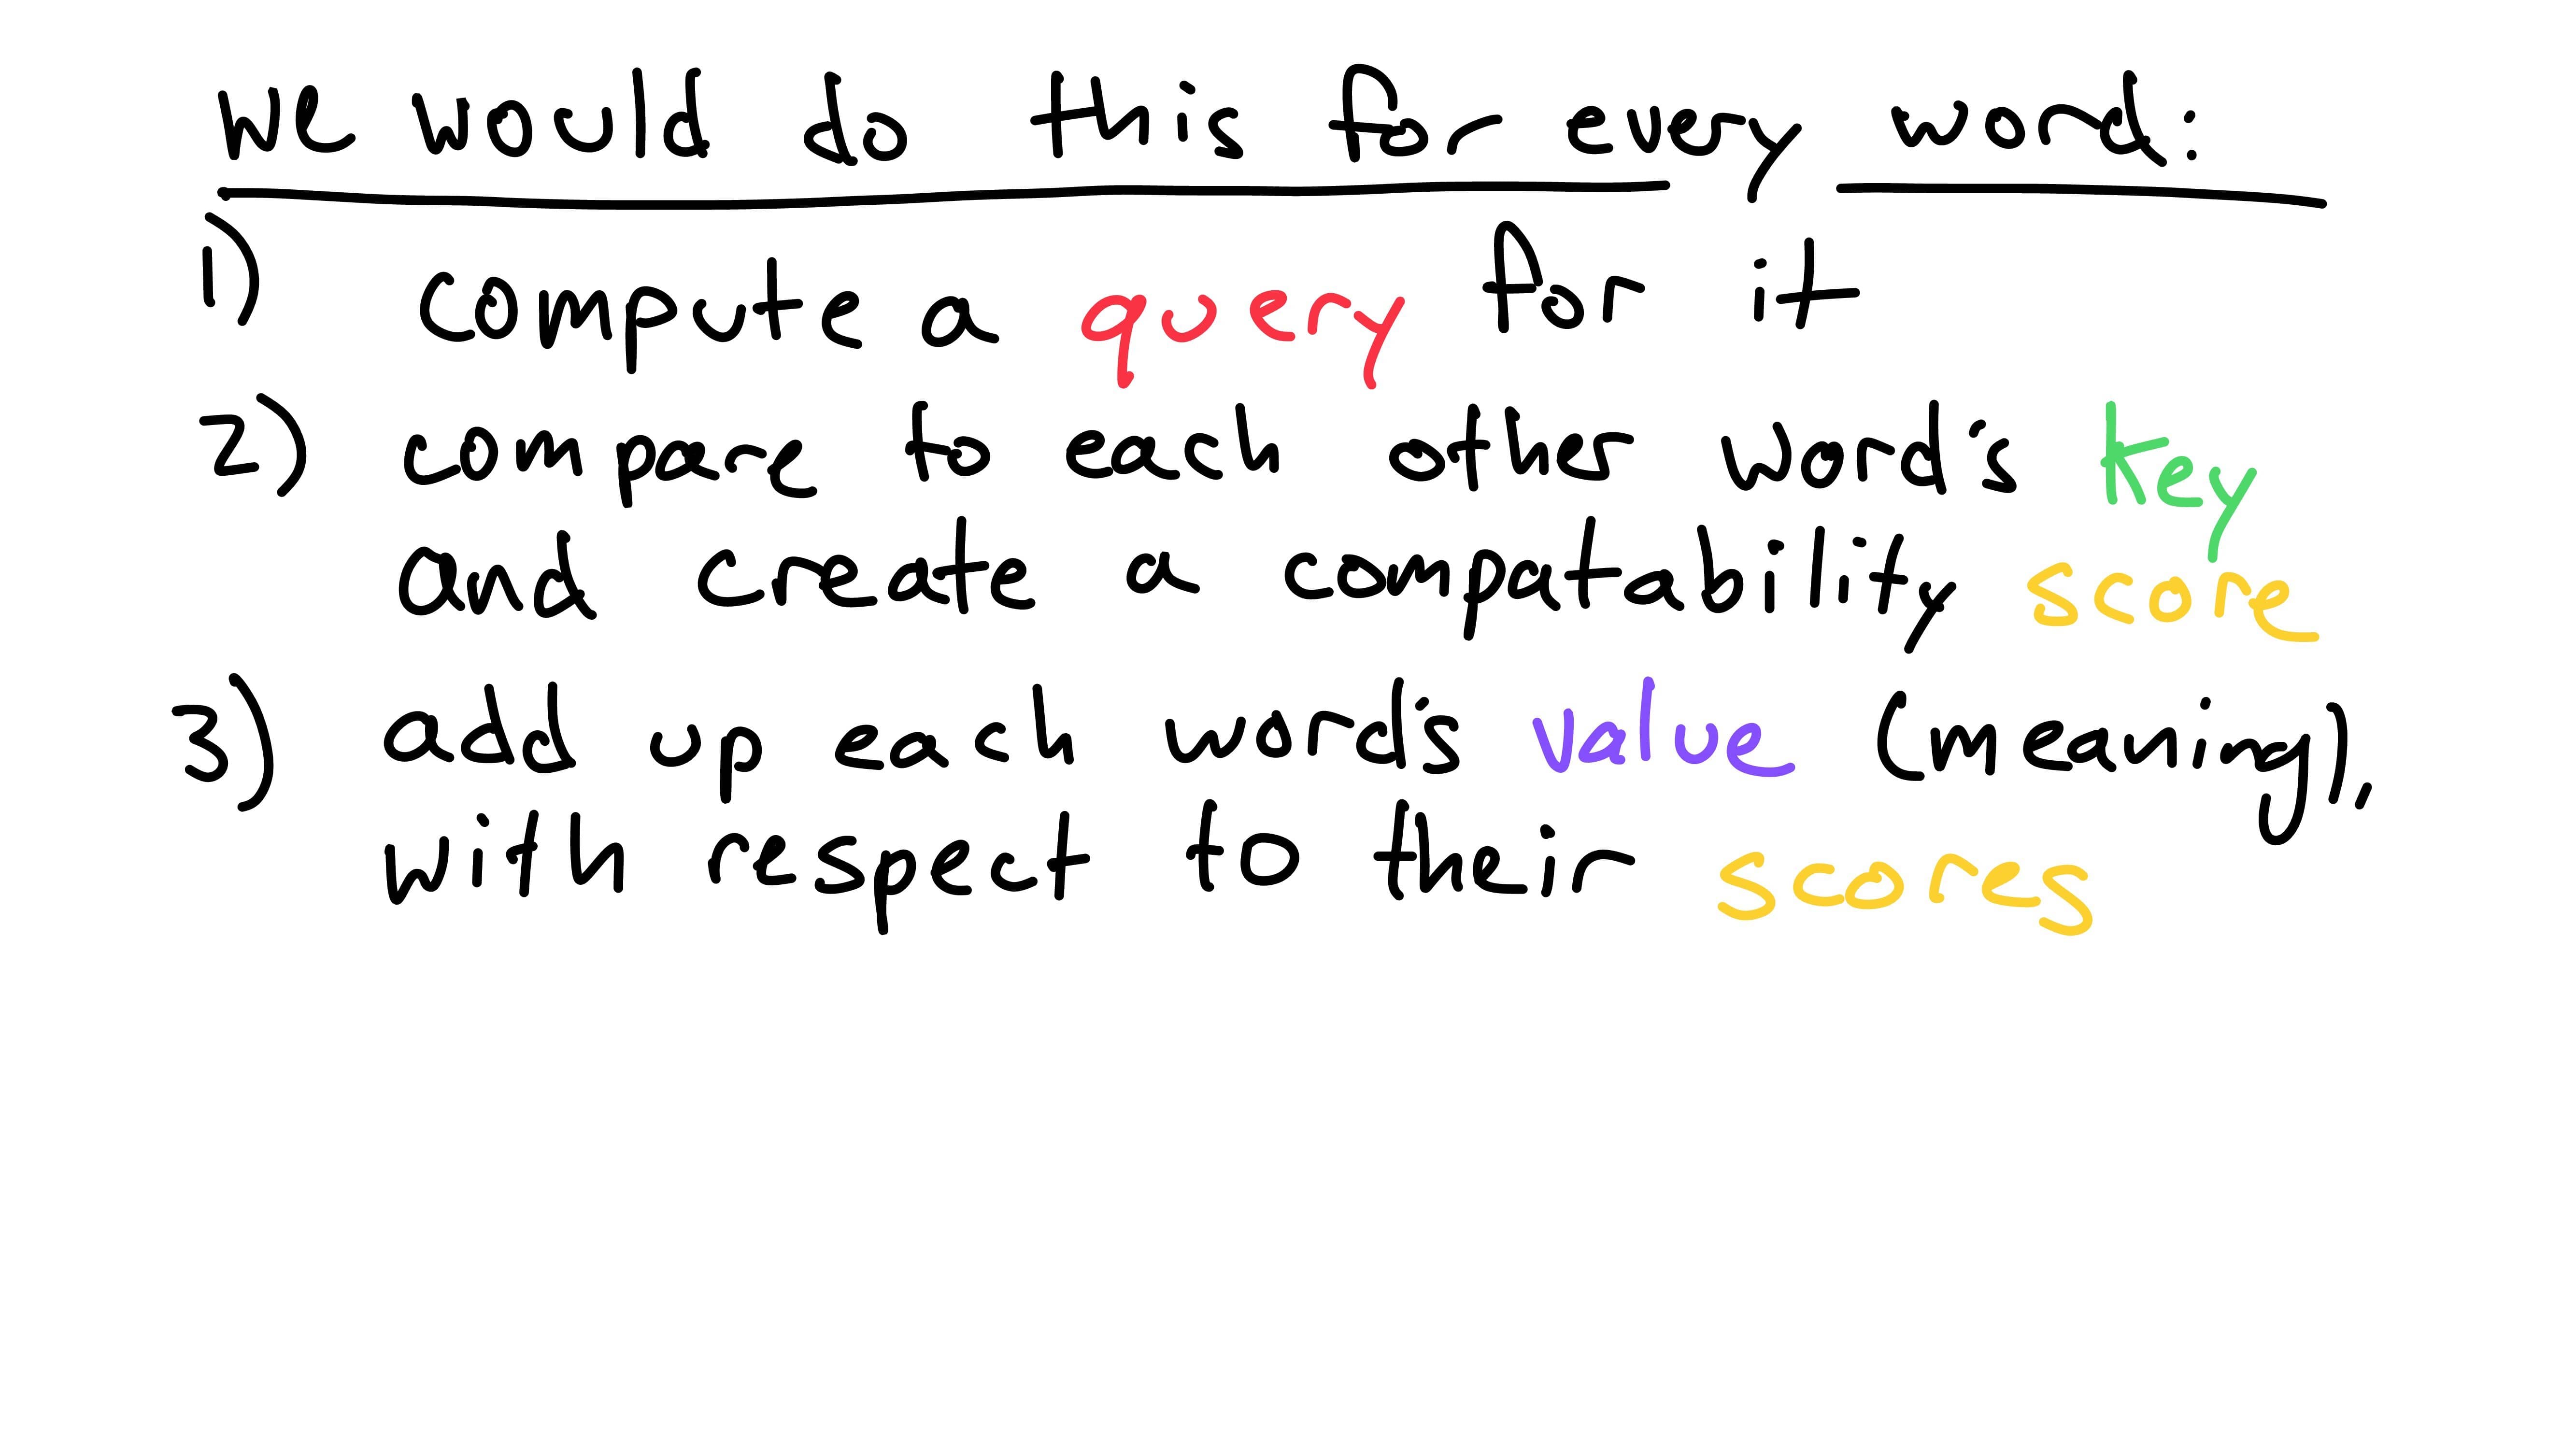 we would do this for every word:
1) compute a query for it
2) compare to each other word's key
and create a compatability score
3) add up each word's value (meaning),
with respect to their scores